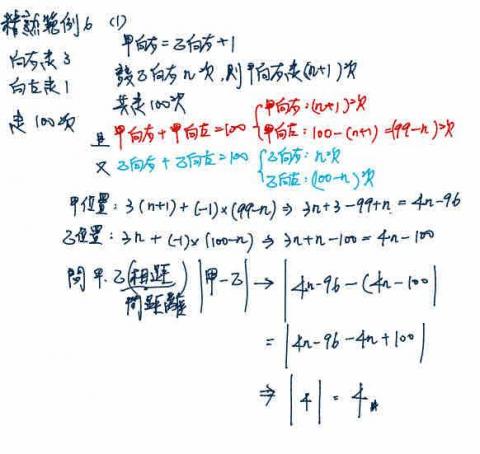 精熟範例6 (1)
甲向右=乙向右+1
向右走3
設乙向右n次,則甲向右走(n+1)次
向左走1
共走100次
走100次
且甲向右+甲向左=100 甲向右:(n+1)次
甲向左:100-(n+1)=(99-n)次
又乙向右+乙向左=100 乙向右:n次
乙向左:(100-n)次
甲位置:3(n+1)+(-1)×(99-n)⇒3n+3-99+n=4n-96
乙位置:3n+(-1)×(100-n)⇒3n+n-100=4n-100
問甲.乙(相距) |甲-乙|→|4n-96-(4n-100|
問距離
=|4n-96-4n+100|
⇒|4|=4